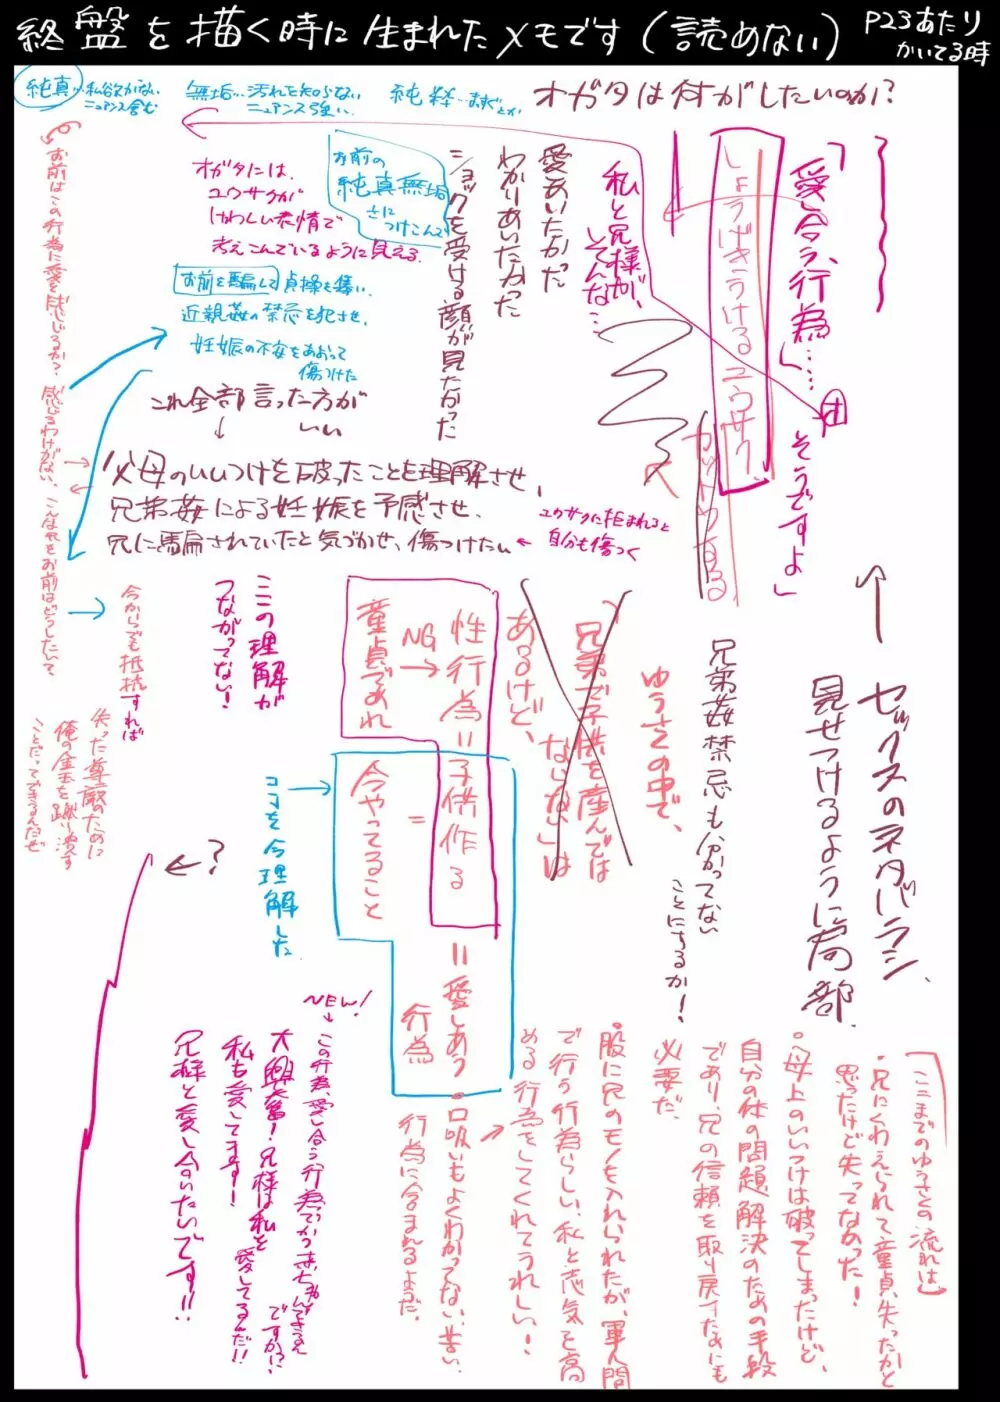 終盤を描く時に生まれたメモです(読めない)
P23あたり
かいてる時
純真…私欲がない
ニュアンス含む
無垢…汚れを知らない
ニュアンス強い
純粋…まずとか
オガタは何がしたいのか?
「愛し合う、行為」……
そうですよ」
しょうげきうけるユウサク、
カットつする
私と兄様が、
そんな…
愛しあいたかった
わかりあいたかった
ショックを受ける顔が見たかった
お前の
純真無垢
さに
つけこんで
オガタには、
ユウサクが
けわしい表情で
考えこんでいるように見える
お前を騙して貞操を奪い、
近親姦の禁忌を犯させ、
妊娠の不安をあおって
傷つけた
これ全部言った方が
いい
父母のいいつけを破ったことを理解させ、
兄弟姦による妊娠を予感させ、
兄に騙されていたと気づかせ、傷つけたい
ユウサクに拒まれると
自分も傷つく
お前はこの行為に愛を感じるか? 感じるわけがない、こんなことをお前はどうしたいて
今からでも抵抗すれば
失った尊厳のために
俺の金玉を蹴り潰す
ことだってできるんだぜ
?
セックスのネタバラシ、
見せつけるように局部
兄弟姦禁忌も分かってない
ことにするか!
ゆうさくの中で、
「兄弟で子供を産んでは
ならない」は
あるけど、
性行為=子供作る
NG
童貞であれ
=
今やってること
=愛しあう
行為
ここの理解が
つながってない!
ココを今理解した
NEW!
この行為、愛し合う行為でかつ赤ちゃんできるえ
ですか!?
大興奮!兄様は私を愛してるんだ!!
私も愛してます!
兄様と愛し合いたいです!!
ここまでのゆうさくの流れは
・兄にくわえられて童貞失ったかと
思ったけど失ってなかった!
・母上のいいつけは破ってしまったけど、
自分の体の問題解決のための手段
であり、兄の信頼を取り戻すためにも
必要だ、
・股に兄のモノを入れられたが、軍人間
で行う行為らしい、私と志気を高
める行為をしてくれてうれしい!
・口吸いもよくわかってない、苦しい、
行為に含まれるようだ、